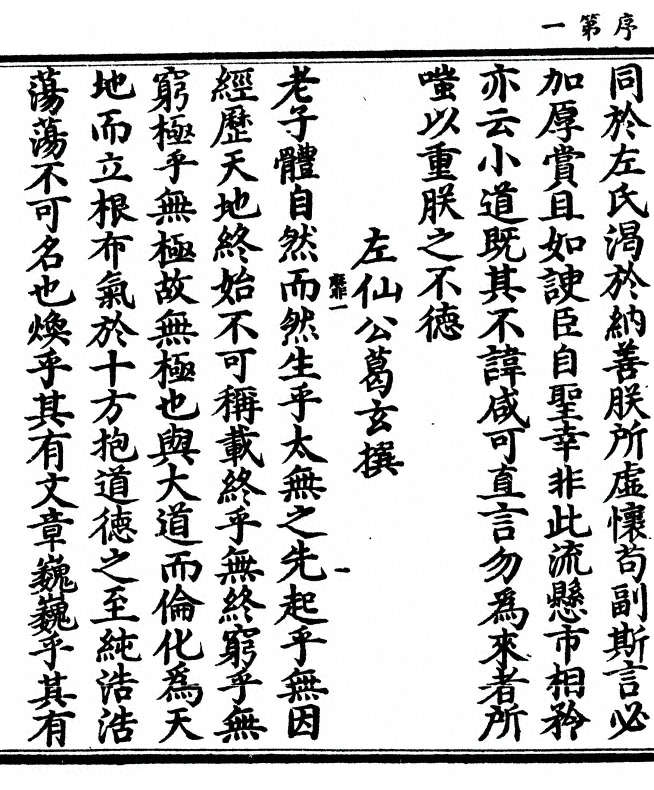 序第一
同於左氏渴於納善朕所虛懷苟副斯言必
加厚賞且如諛臣自聖幸非此流懸市相矜
亦云小道既其不諱咸可直言勿為來者所
嗤以重朕之不德
左仙公葛玄撰
老子體自然而然生乎太無之先起乎無因
經歷天地終始不可稱載終乎無終窮乎無
窮極乎無極故無極也與大道而倫化為天
地而立根布氣於十方抱道德之至純浩浩
蕩蕩不可名也煥乎其有文章巍巍乎其有